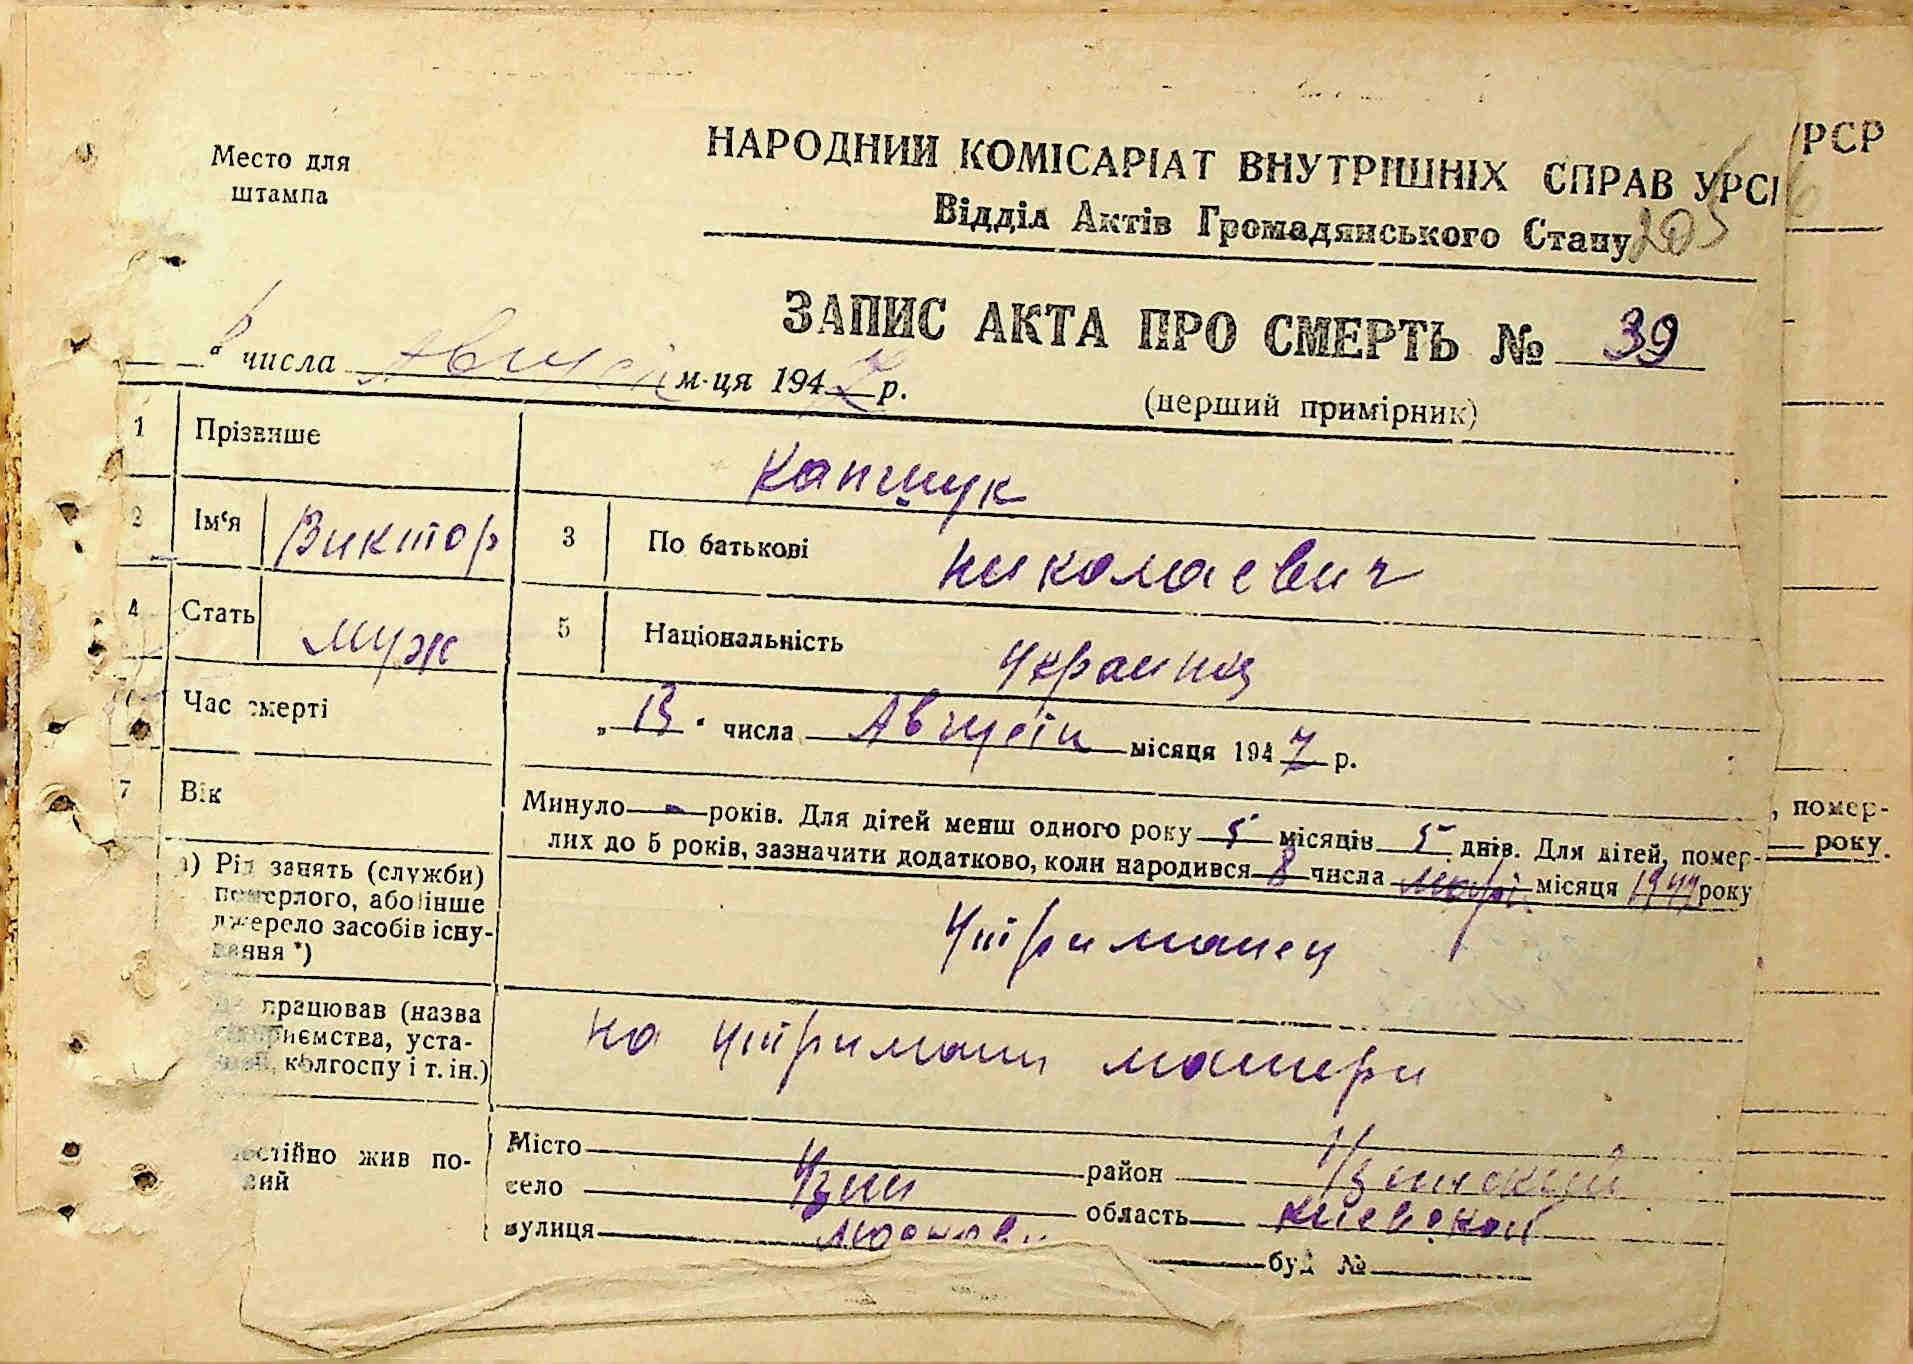 Место для
штампа
НАРОДНИЙ КОМІСАРІАТ ВНУТРІШНІХ СПРАВ УРСР
УРСР
Відділ Актів Громадянського Стану
205
ЗАПИС АКТА ПРО СМЕРТЬ № 39
числа Август м-ця 1947 р.
(перший примірник)
1 Прізвище Капшук
2 Ім'я Виктор 3 По батькові Николаевич
4 Стать муж 5 Національність Украинц
Час смерті „ 13 " числа Август місяця 1947 р.
7 Вік Минуло - років. Для дітей менш одного року 5 місяців 5 днів. Для дітей, помер-
лих до 5 років, зазначити додатково, коли народився 8 числа місяця 1947 року
, помер-
року.
а) Рід занять (служби)
померлого, або інше
джерело засобів існу-
вання *)
Утриманец
працював (назва
підприємства, уста-
нови, колгоспу і т. ін.)
на утриман матери
постійно жив по-
Місто район Узинский
село Узин область Киевской
вулиця буд №